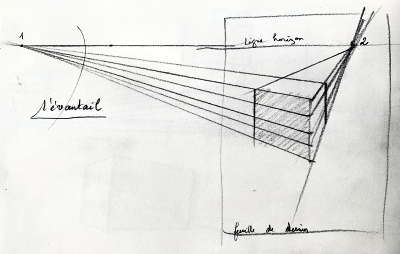 1
ligne horizon
2
l'évantail
feuille de dessin